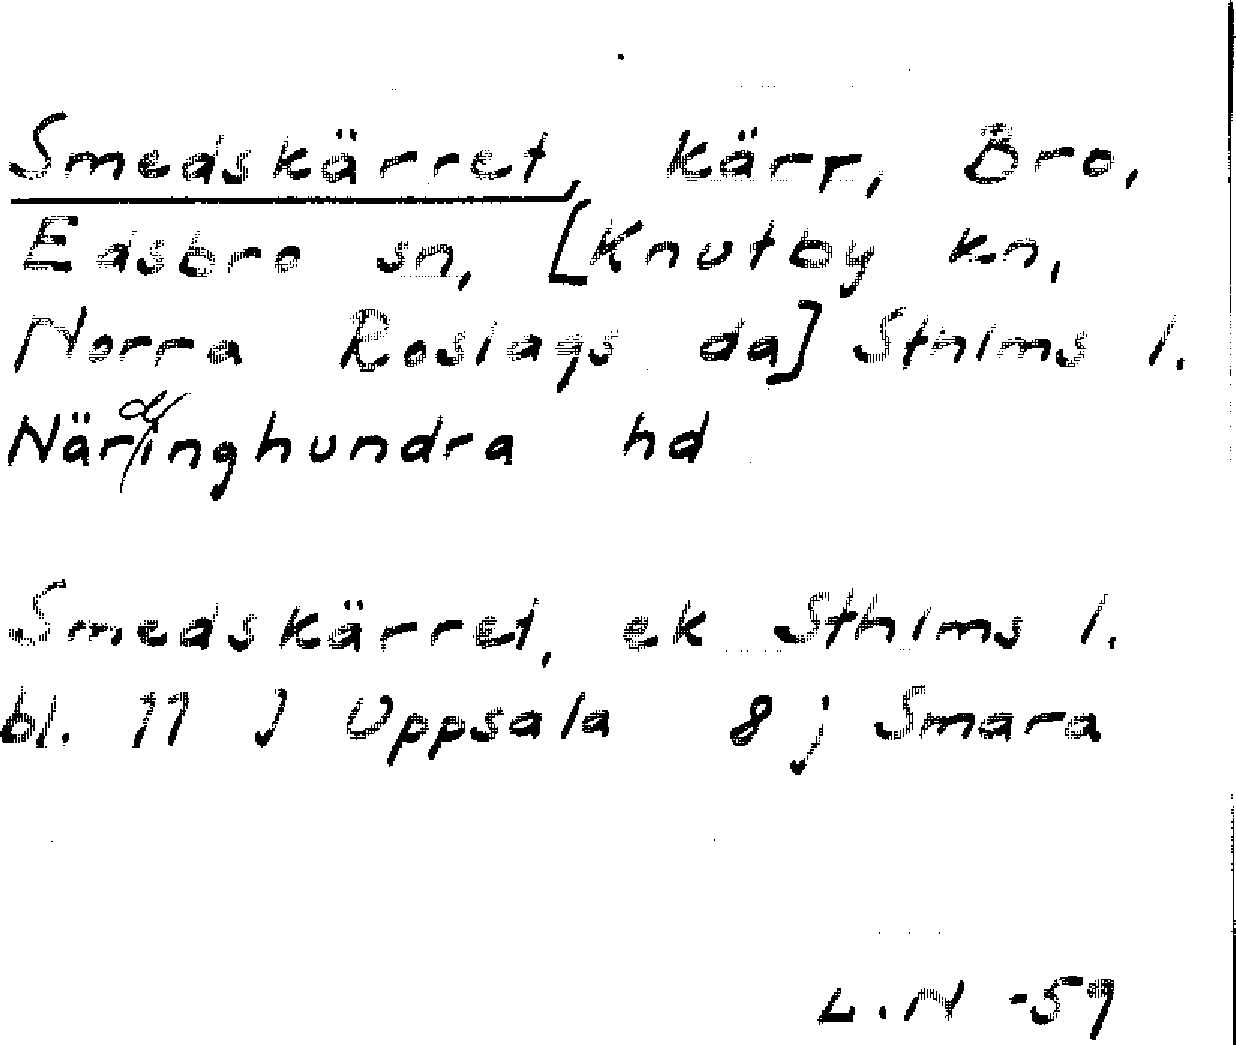 Smedskärret, kärr, Bro,
Edsbro sn, [Knutby kn,
Norra Roslags da] Sthlms l.
Närdinghundra hd
Smedskärret, ek Sthlms l.
bl. 11 J Uppsala 8 j Smara
L.N -59